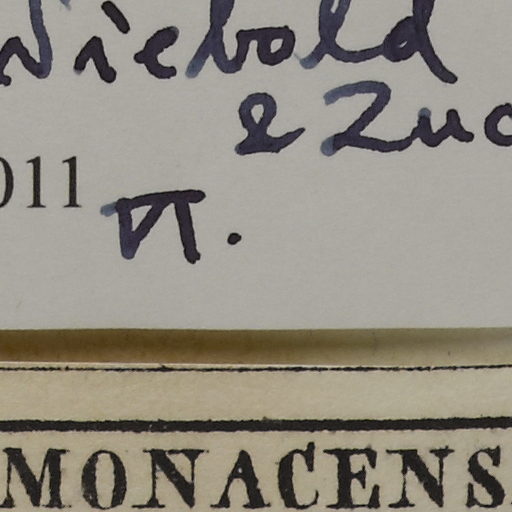 Siebold
& Zuc
011
VI.
MONACENS